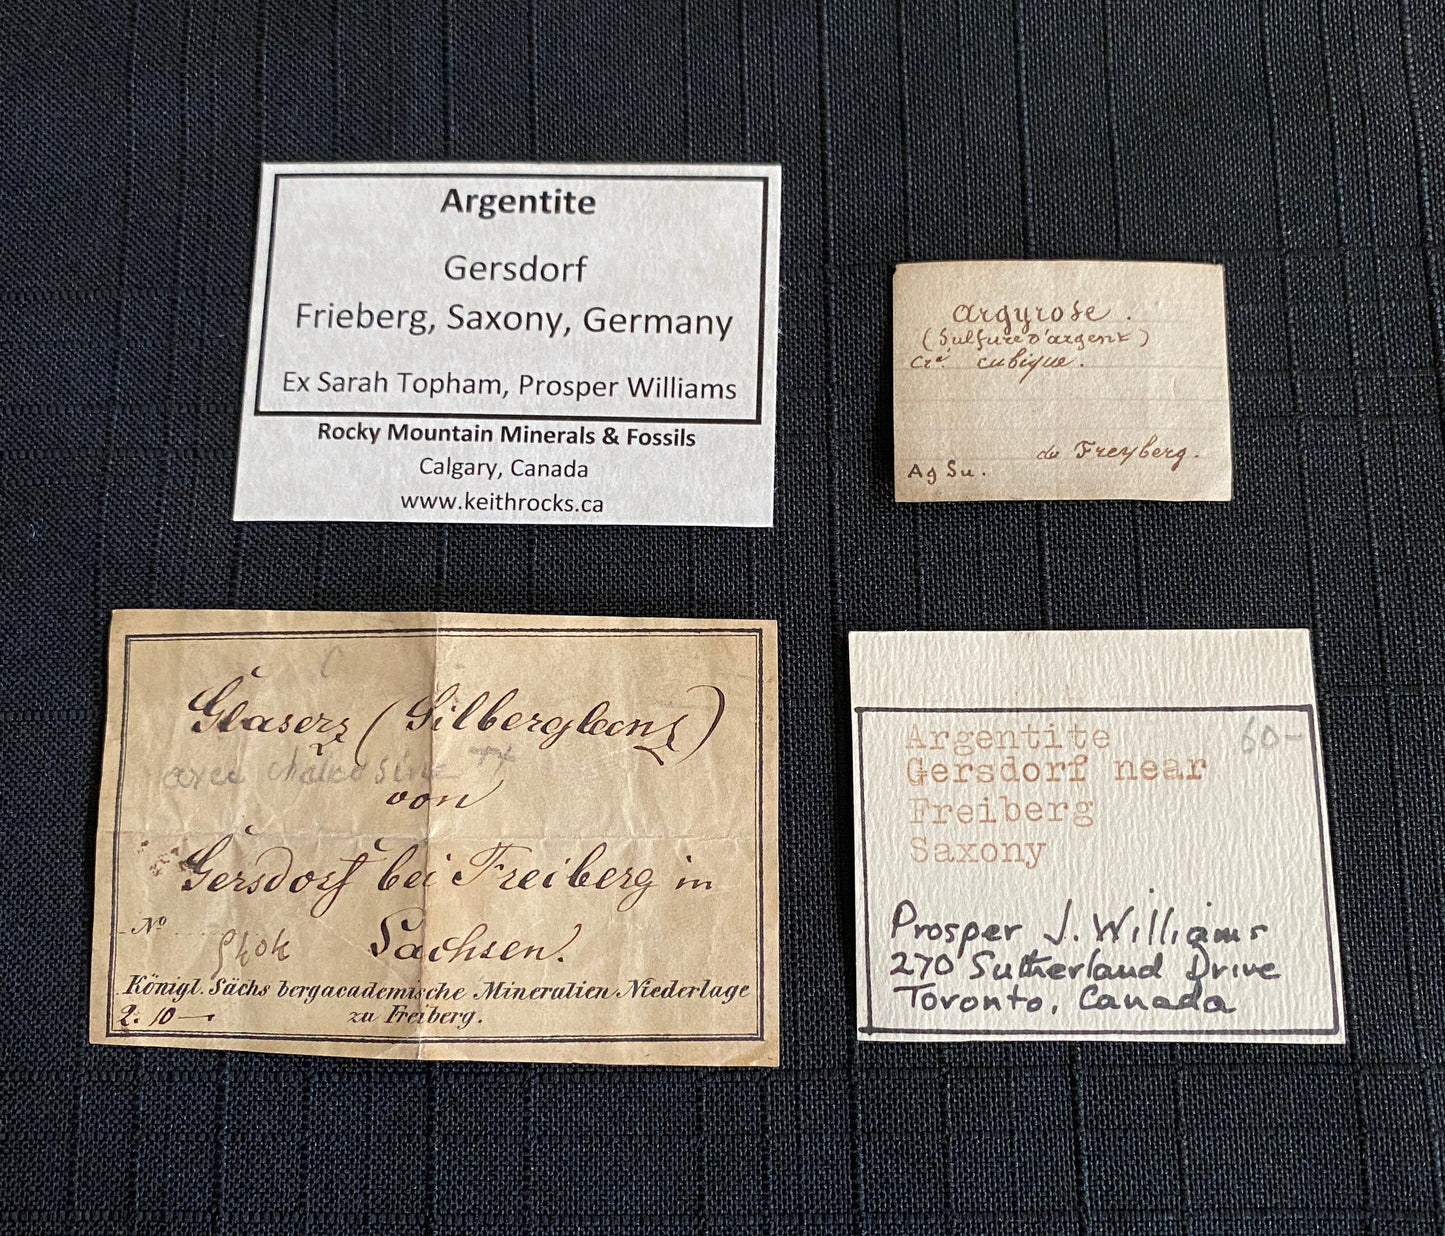 Argentite
Gersdorf
Frieberg, Saxony, Germany
Ex Sarah Topham, Prosper Williams
Rocky Mountain Minerals & Fossils
Calgary, Canada
www.keithrocks.ca
argyrose.
(Sulfure d'argent)
cubique.
de Freyberg.
Ag Su.
Glaserz (Silberglanz)
avec chalcosine
von
Gersdorf bei Freiberg in
Sachsen.
No
Königl. Sächs bergacademische Mineralien Niederlage
zu Freiberg.
2. 10 —
Argentite
60-
Gersdorf near
Freiberg
Saxony
Prosper J. Williams
270 Sutherland Drive
Toronto, Canada